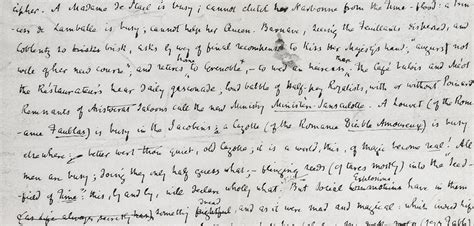 cipher. A Madame de Stael is busy; cannot clutch her Narbonne from the Time-flood: a Prin-
cess de Lamballe is busy; cannot help her Queen. Barnave, seeing the Feuillants dispersed, and
Coblentz so brisk, asks by way of final recompense to kiss Her Majesty's hand, augurs not
well of her new course, and retires home to Grenoble, to wed an heiress there. The Café Valois and Méot
the Restaurateur's hear daily gasconade, loud babble of Half-pay Royalists, with or without Poniards
Remnants of Aristocrat Saloons call the new Ministry Ministère-Sansculotte. A Louvet (of the Rom-
ance Faublas) is busy in the Jacobins; a Cazotte (of the Romance Diable Amoureux) is busy
elsewhere; better wert thou quiet, old Cazotte; it is a world, this, of magic become real! All
men are busy; doing they only half guess what, – flinging seeds (of tares mostly) into the "Seed-
field of Time": this, by and by, will declare wholly what. But Social Explosions have in them
something dread, and as it were mad and magical: which indeed Life